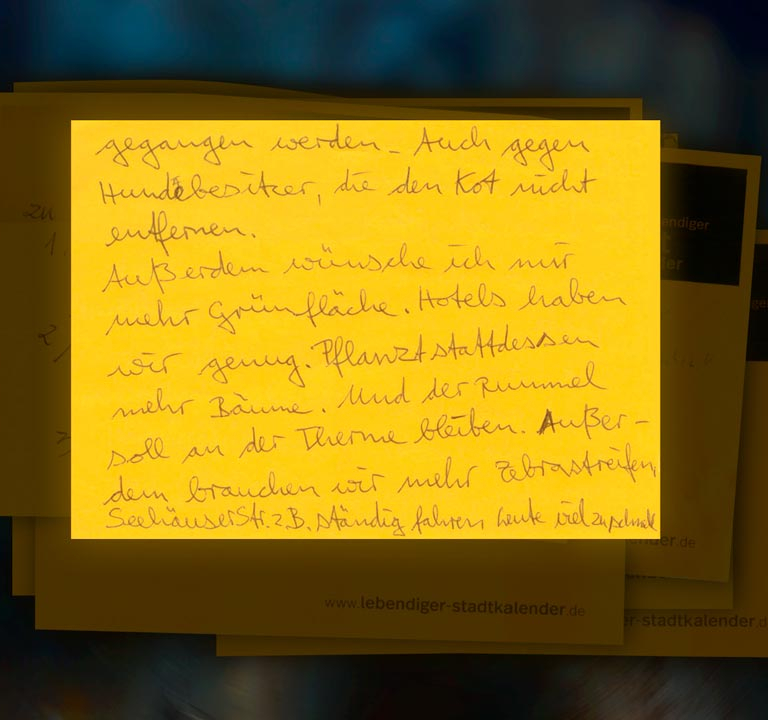 gegangen werden. Auch gegen
Hundebesitzer, die den Kot nicht
entfernen.
Außerdem wünsche ich mir
mehr Grünfläche. Hotels haben
wir genug. Pflanzt stattdessen
mehr Bäume. Und der Rummel
soll an der Therme bleiben. Außer-
dem brauchen wir mehr Zebrastreifen,
Seehäuser Str. z.B. ständig fahren Leute viel zu schnell
zu
1.
2
3
www.lebendiger-stadtkalender.de
er-stadtkalender.d
nder.de